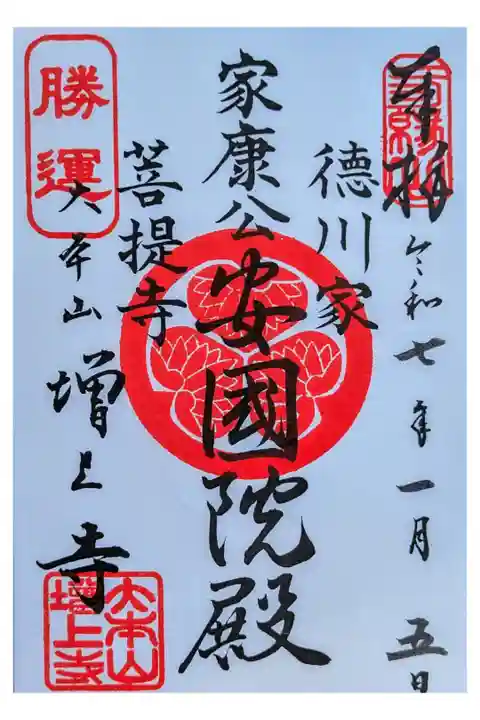 奉拝
令和七年一月五日
徳川家
家康公安國院殿
菩提寺
大本山増上寺
勝運
大本山
増上寺